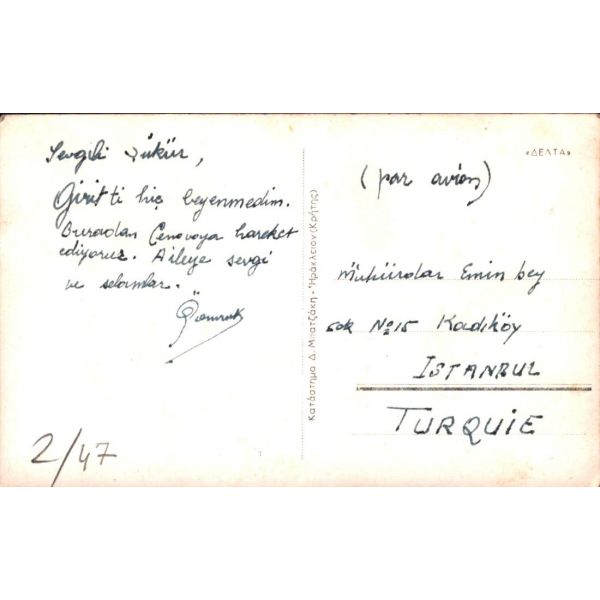 Sevgili Şükür,
Girit'i hiç beyenmedim.
Buradan Cenovaya hareket
ediyoruz. Aileye sevgi
ve selamlar.
2/47
Κατάστημα Δ. Μπατζάκη - Ἡράκλειον (Κρήτης)
«ΔΕΛΤΑ»
(par avion)
Mühürdar Emin bey
sok No 15 Kadıköy
ISTANBUL
TURQUIE